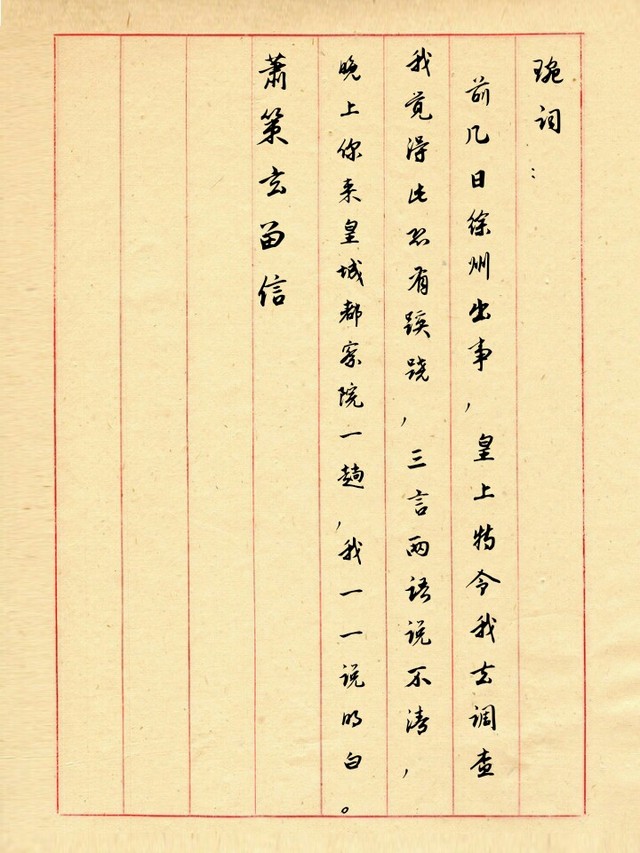 琬词：
前几日徐州出事，皇上特令我去调查
我觉得此恐有蹊跷，三言两语说不清，
晚上你来皇城都察院一趟，我一一说明白。
萧策玄留信